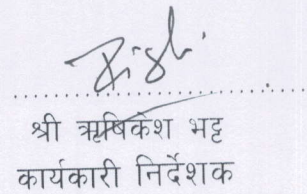 श्री ऋषिकेश भट्ट
कार्यकारी निर्देशक